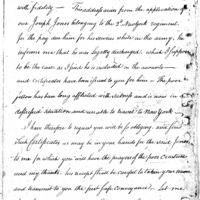 with fidelity — This address from the application of
one Joseph Jones belonging to the 2d New York regiment
for the pay due him for his services whilst in the army, he
informs me that he was legally discharged which I suppose
to be the case as I find he is included in the accounts
and certificates have been issued to you for him — The poor
fellow has been long afflicted with and is now in a
distressed situation and unable to travel to New York —
I have therefore to request you will be so obliging and find
such Certificates as may be in your hands for the said Jones,
to me for which you will have the prayers of the poor creature
and my thanks: his receipt shall be
and transmit to you the first safe conveyance. Let me